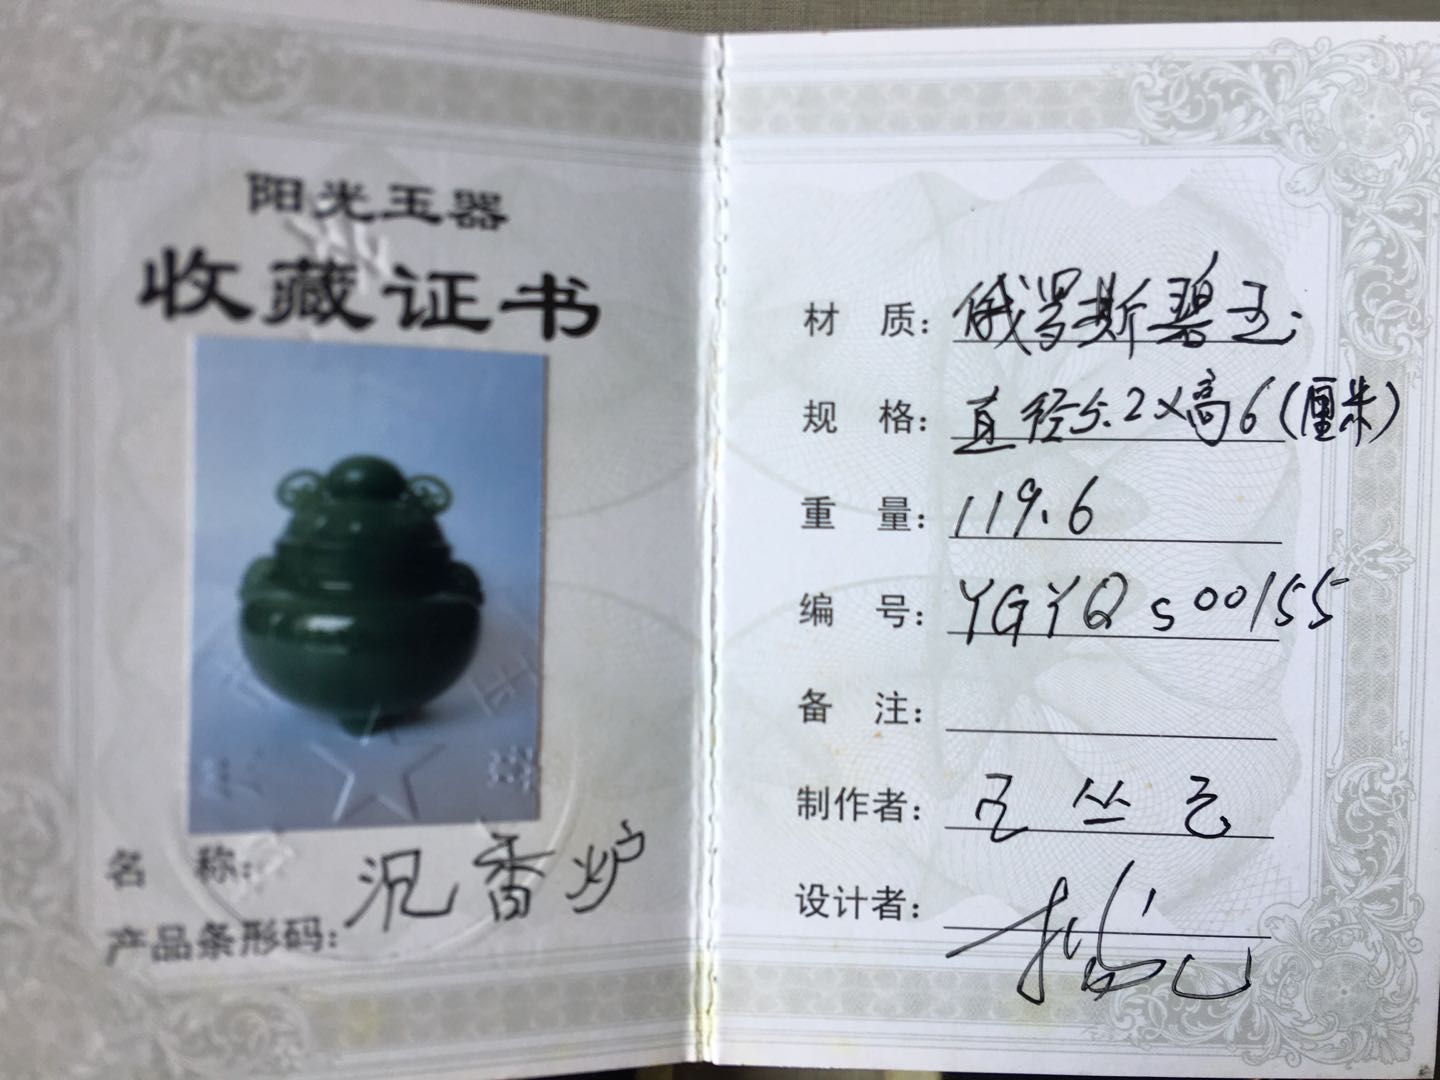 阳光玉器
收藏证书
名 称: 沉香炉
产品条形码:
材 质: 俄罗斯碧玉
规 格: 直径5.2×高6(厘米)
重 量: 119.6
编 号: YGYQ S00155
备 注:
制作者:
设计者: